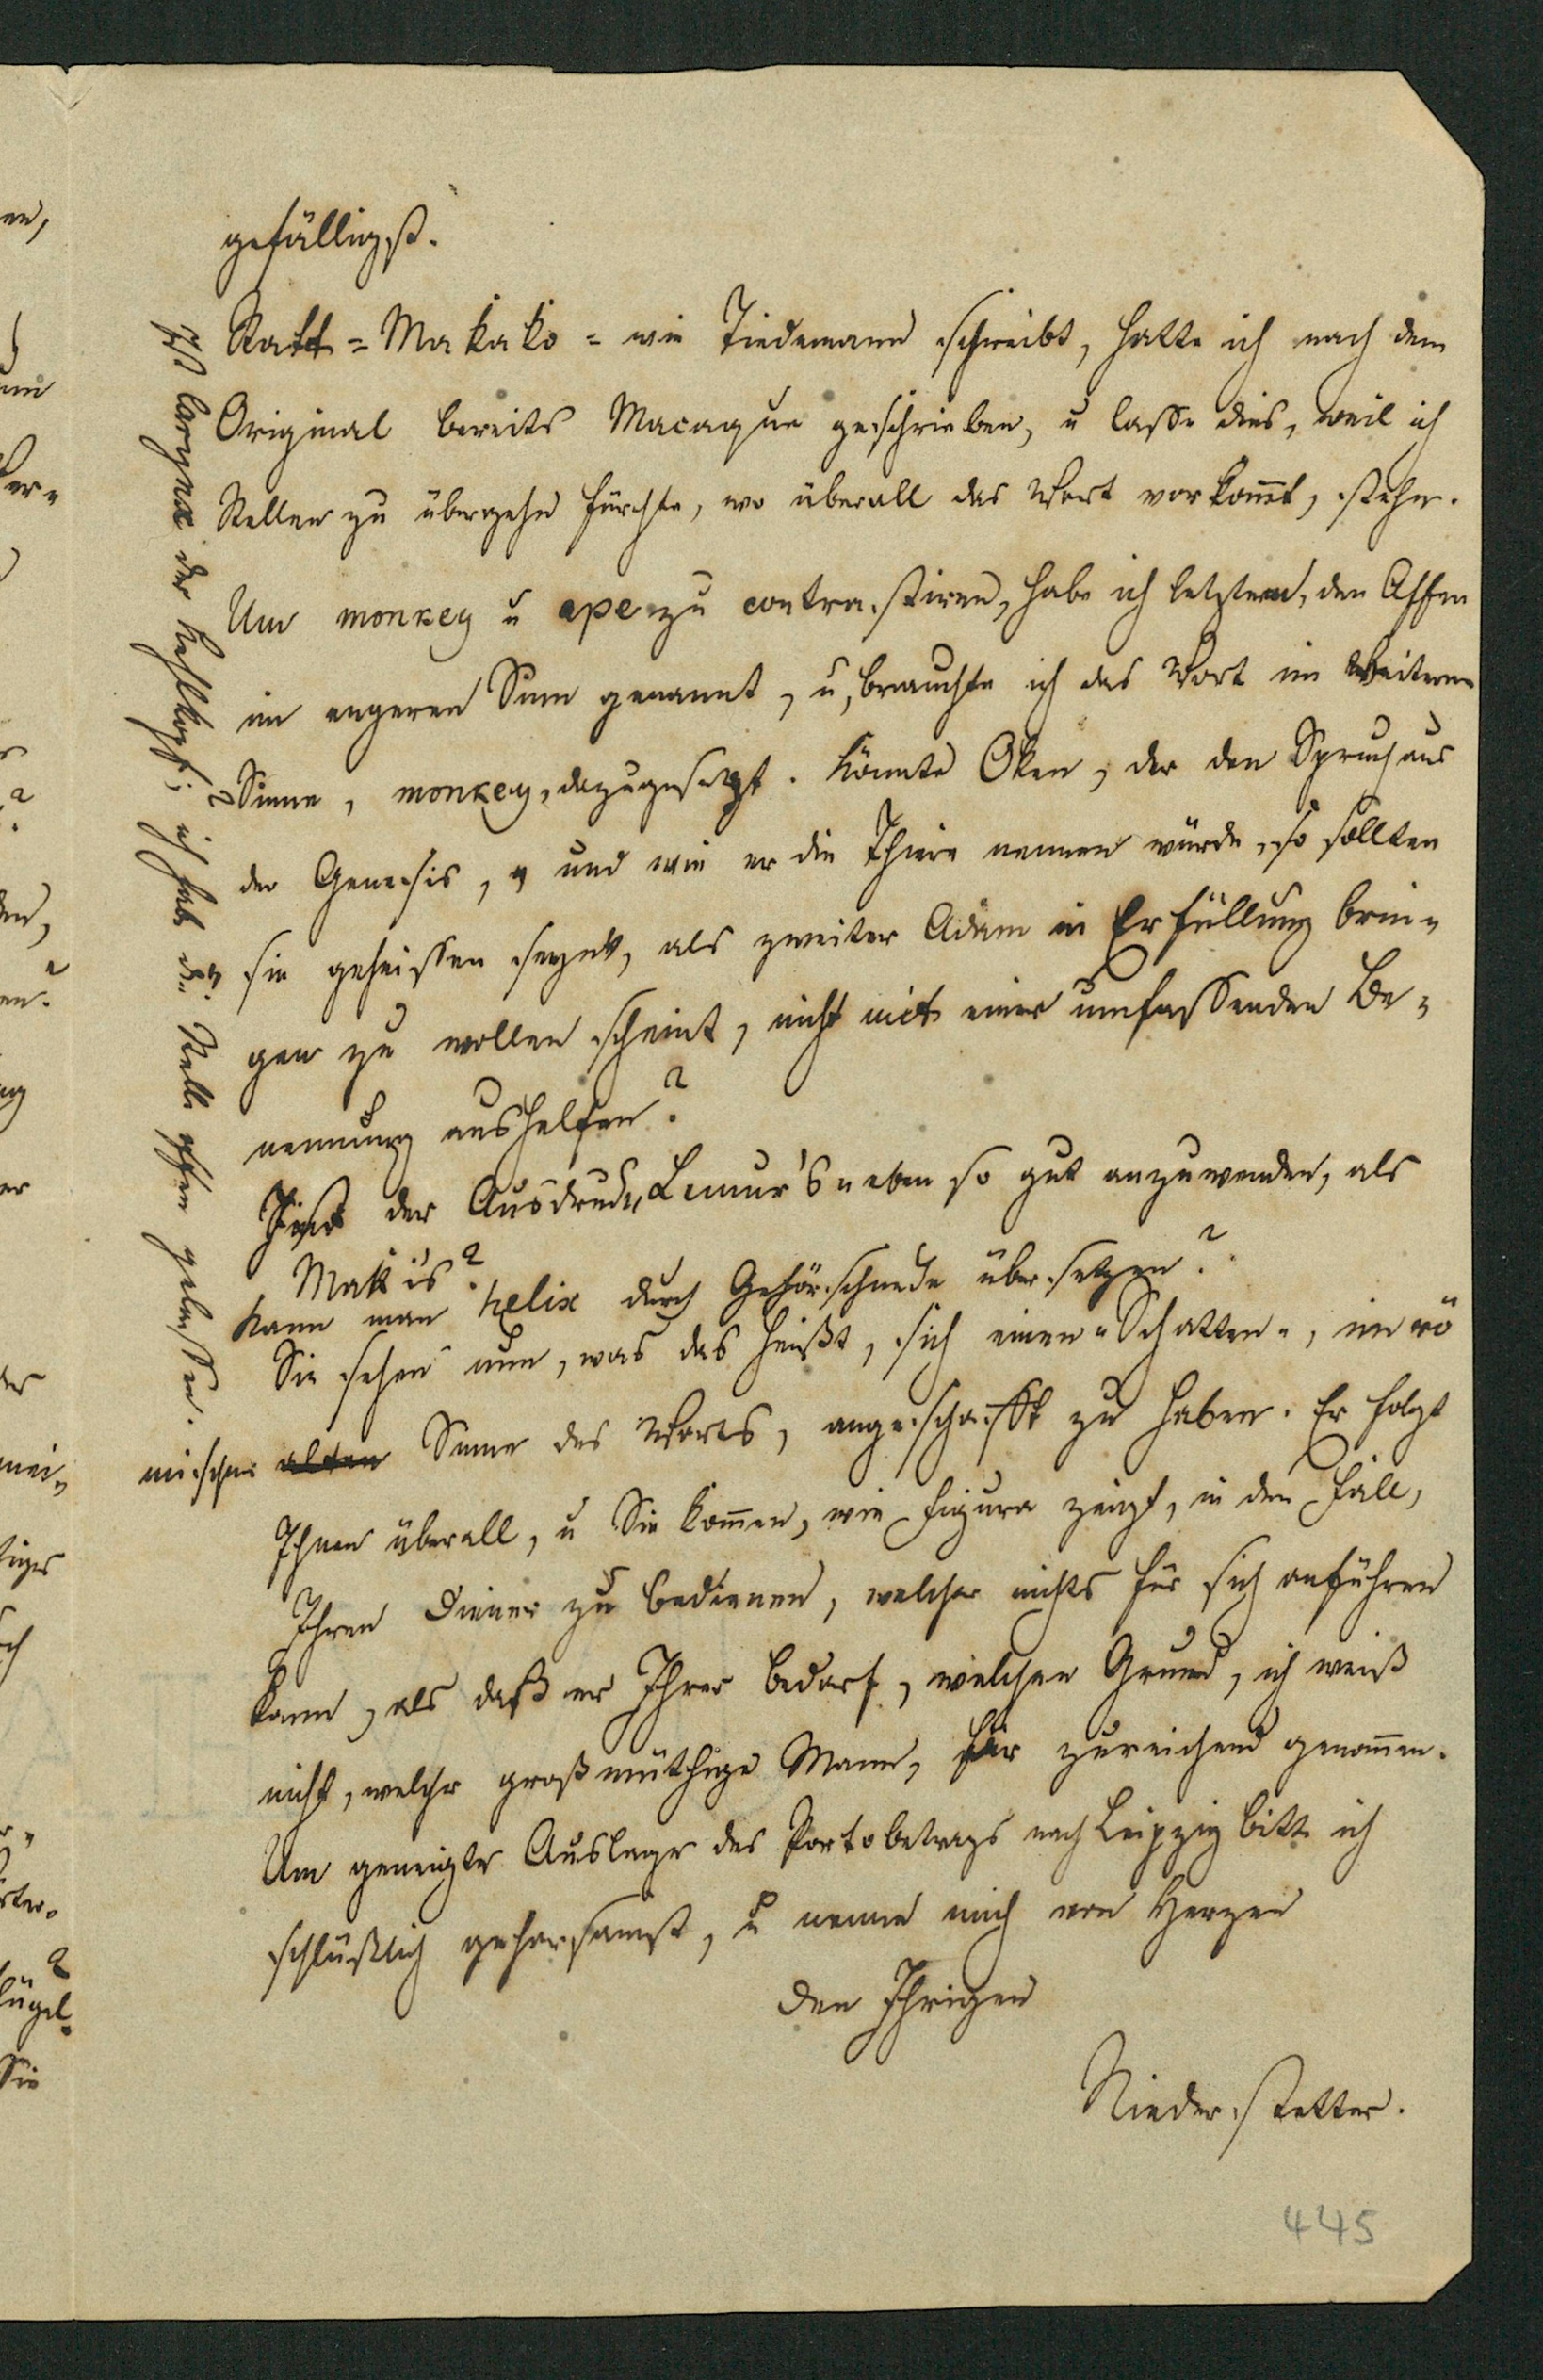 gefälligst.
Statt = Makako = wie Tiedemann schreibt, hatte ich nach dem
Original bereits Macaque geschrieben, u lasse dies, weil ich
Stellen zu übergehen fürchte, wo überall das Wort vorkom̄t, stehn.
Um monkey u ape zu contrastiren, habe ich letztern, den Affen
im engeren Sinn genannt, u, brauchte ich das Wort im Weiteren
Sinne, monkey, dazugesetzt. Könnte Oken, der den Spruch aus
der Genesis, „ und wie er die Thiere nennen würde, so sollten
sie geheissen seyn“, als zweiter Adam in Erfüllung brin„
gen zu wollen scheint, nicht mit einer umfassenden Be„
nennung aushelfen?
Ist der Ausdruck „Lemur's“ eben so gut anzuwenden, als
Makis?
Kann man helix durch Gehörschnecke übersetzen?
Sie sehen nun, was das heißt, sich einen „Schatten“, im rö
mischen alten Sinne des Worts, angeschafft zu haben. Er folgt
Ihnen überall, u Sie kom̄en, wie Figura zeigt, in den Fall,
Ihren Diener zu bedienen, welcher nichts für sich anführen
kann, als daß er Ihrer bedarf, welchen Grund, ich weiß
nicht, welcher großmüthige Mann, für zureichend genom̄en.
Um geneigte Auslage des Portobetrags nach Leipzig bitte ich
schlüßlich gehorsamst, u nenne mich von Herzen
den Ihrigen
Niederstetter.
445
Ist larynx der Kehlkopf? ich habe die Stelle offen gelassen.